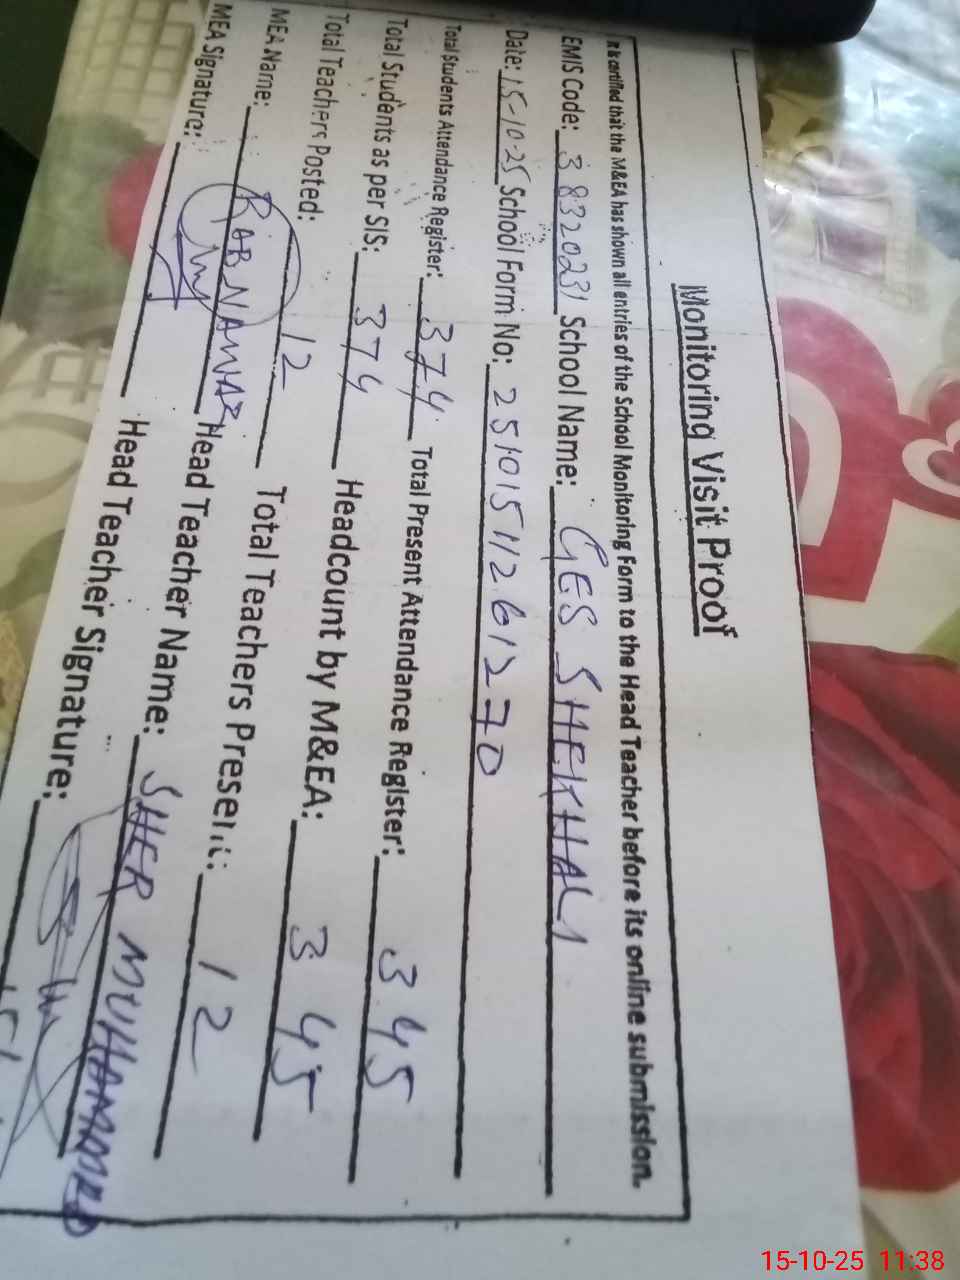 Monitoring Visit Proof
It is certified that the M&EA has shown all entries of the School Monitoring Form to the Head Teacher before its online submission.
EMIS Code: 38320231 School Name: GES SHEKHALI
Date: 15-10-25 School Form No: 251015112601270
Total Students Attendance Register: 374 Total Present Attendance Register: 345
Total Students as per SIS: 374 Headcount by M&EA: 345
Total Teachers Posted: 12 Total Teachers Present: 12
MEA Name: RAB NAWAZ Head Teacher Name: SHER MUHAMMAD
MEA Signature: Head Teacher Signature:
15-10-25 11:38